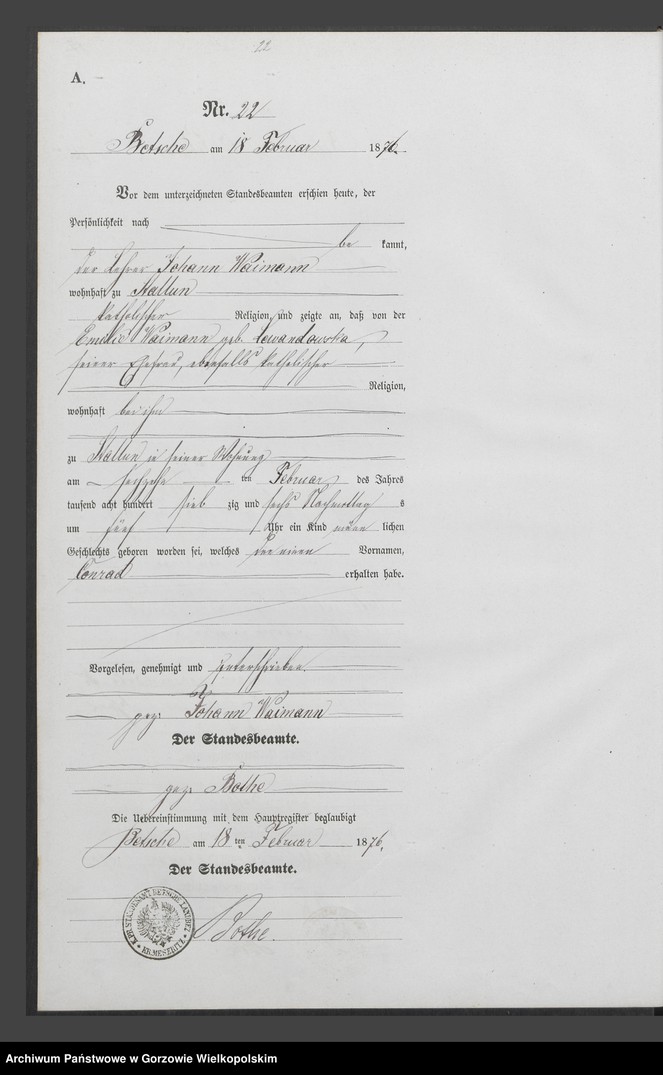 22
A.
Nr. 22
Betsche am 18 Februar 1876.
Vor dem unterzeichneten Standesbeamten erschien heute, der
Persönlichkeit nach
be kannt,
der Lehrer Johann Waimann
wohnhaft zu Stallun
katholischer Religion, und zeigte an, daß von der
Emilie Waimann geb. Lewandowska,
seiner Ehefrau, ebenfalls katholischer
Religion,
wohnhaft bei ihm
zu Stallun in seiner Wohnung
am sechszehn ten Februar des Jahres
tausend acht hundert sieb zig und sechs Nachmittag s
um fünf Uhr ein Kind männ lichen
Geschlechts geboren worden sei, welches den einen Vornamen,
Conrad erhalten habe.
Vorgelesen, genehmigt und unterschrieben.
gez. Johann Waimann
Der Standesbeamte.
gez. Bothe
Die Uebereinstimmung mit dem Hauptregister beglaubigt
Betsche am 18 ten Februar 1876.
Der Standesbeamte.
K. PR. STANDESAMT BETSCHE LANDBEZ.
KR. MESERITZ
Bothe.
Archiwum Państwowe w Gorzowie Wielkopolskim